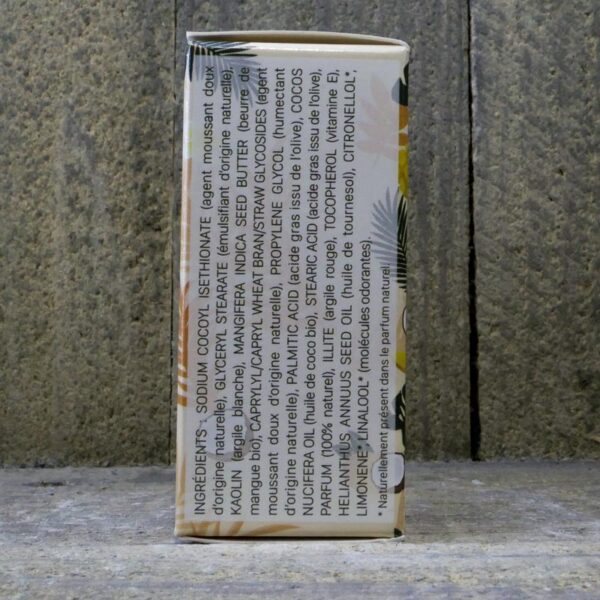 INGRÉDIENTS : SODIUM COCOYL ISETHIONATE (agent moussant doux
d'origine naturelle), GLYCERYL STEARATE (émulsifiant d'origine naturelle),
KAOLIN (argile blanche), MANGIFERA INDICA SEED BUTTER (beurre de
mangue bio), CAPRYLYL/CAPRYL WHEAT BRAN/STRAW GLYCOSIDES (agent
moussant doux d'origine naturelle), PROPYLENE GLYCOL (humectant
d'origine naturelle), PALMITIC ACID (acide gras issu de l'olive), COCOS
NUCIFERA OIL (huile de coco bio), STEARIC ACID (acide gras issu de l'olive),
PARFUM (100% naturel), ILLITE (argile rouge), TOCOPHEROL (vitamine E),
HELIANTHUS ANNUUS SEED OIL (huile de tournesol), CITRONELLOL*,
LIMONENE*, LINALOOL* (molécules odorantes).
* Naturellement présent dans le parfum naturel